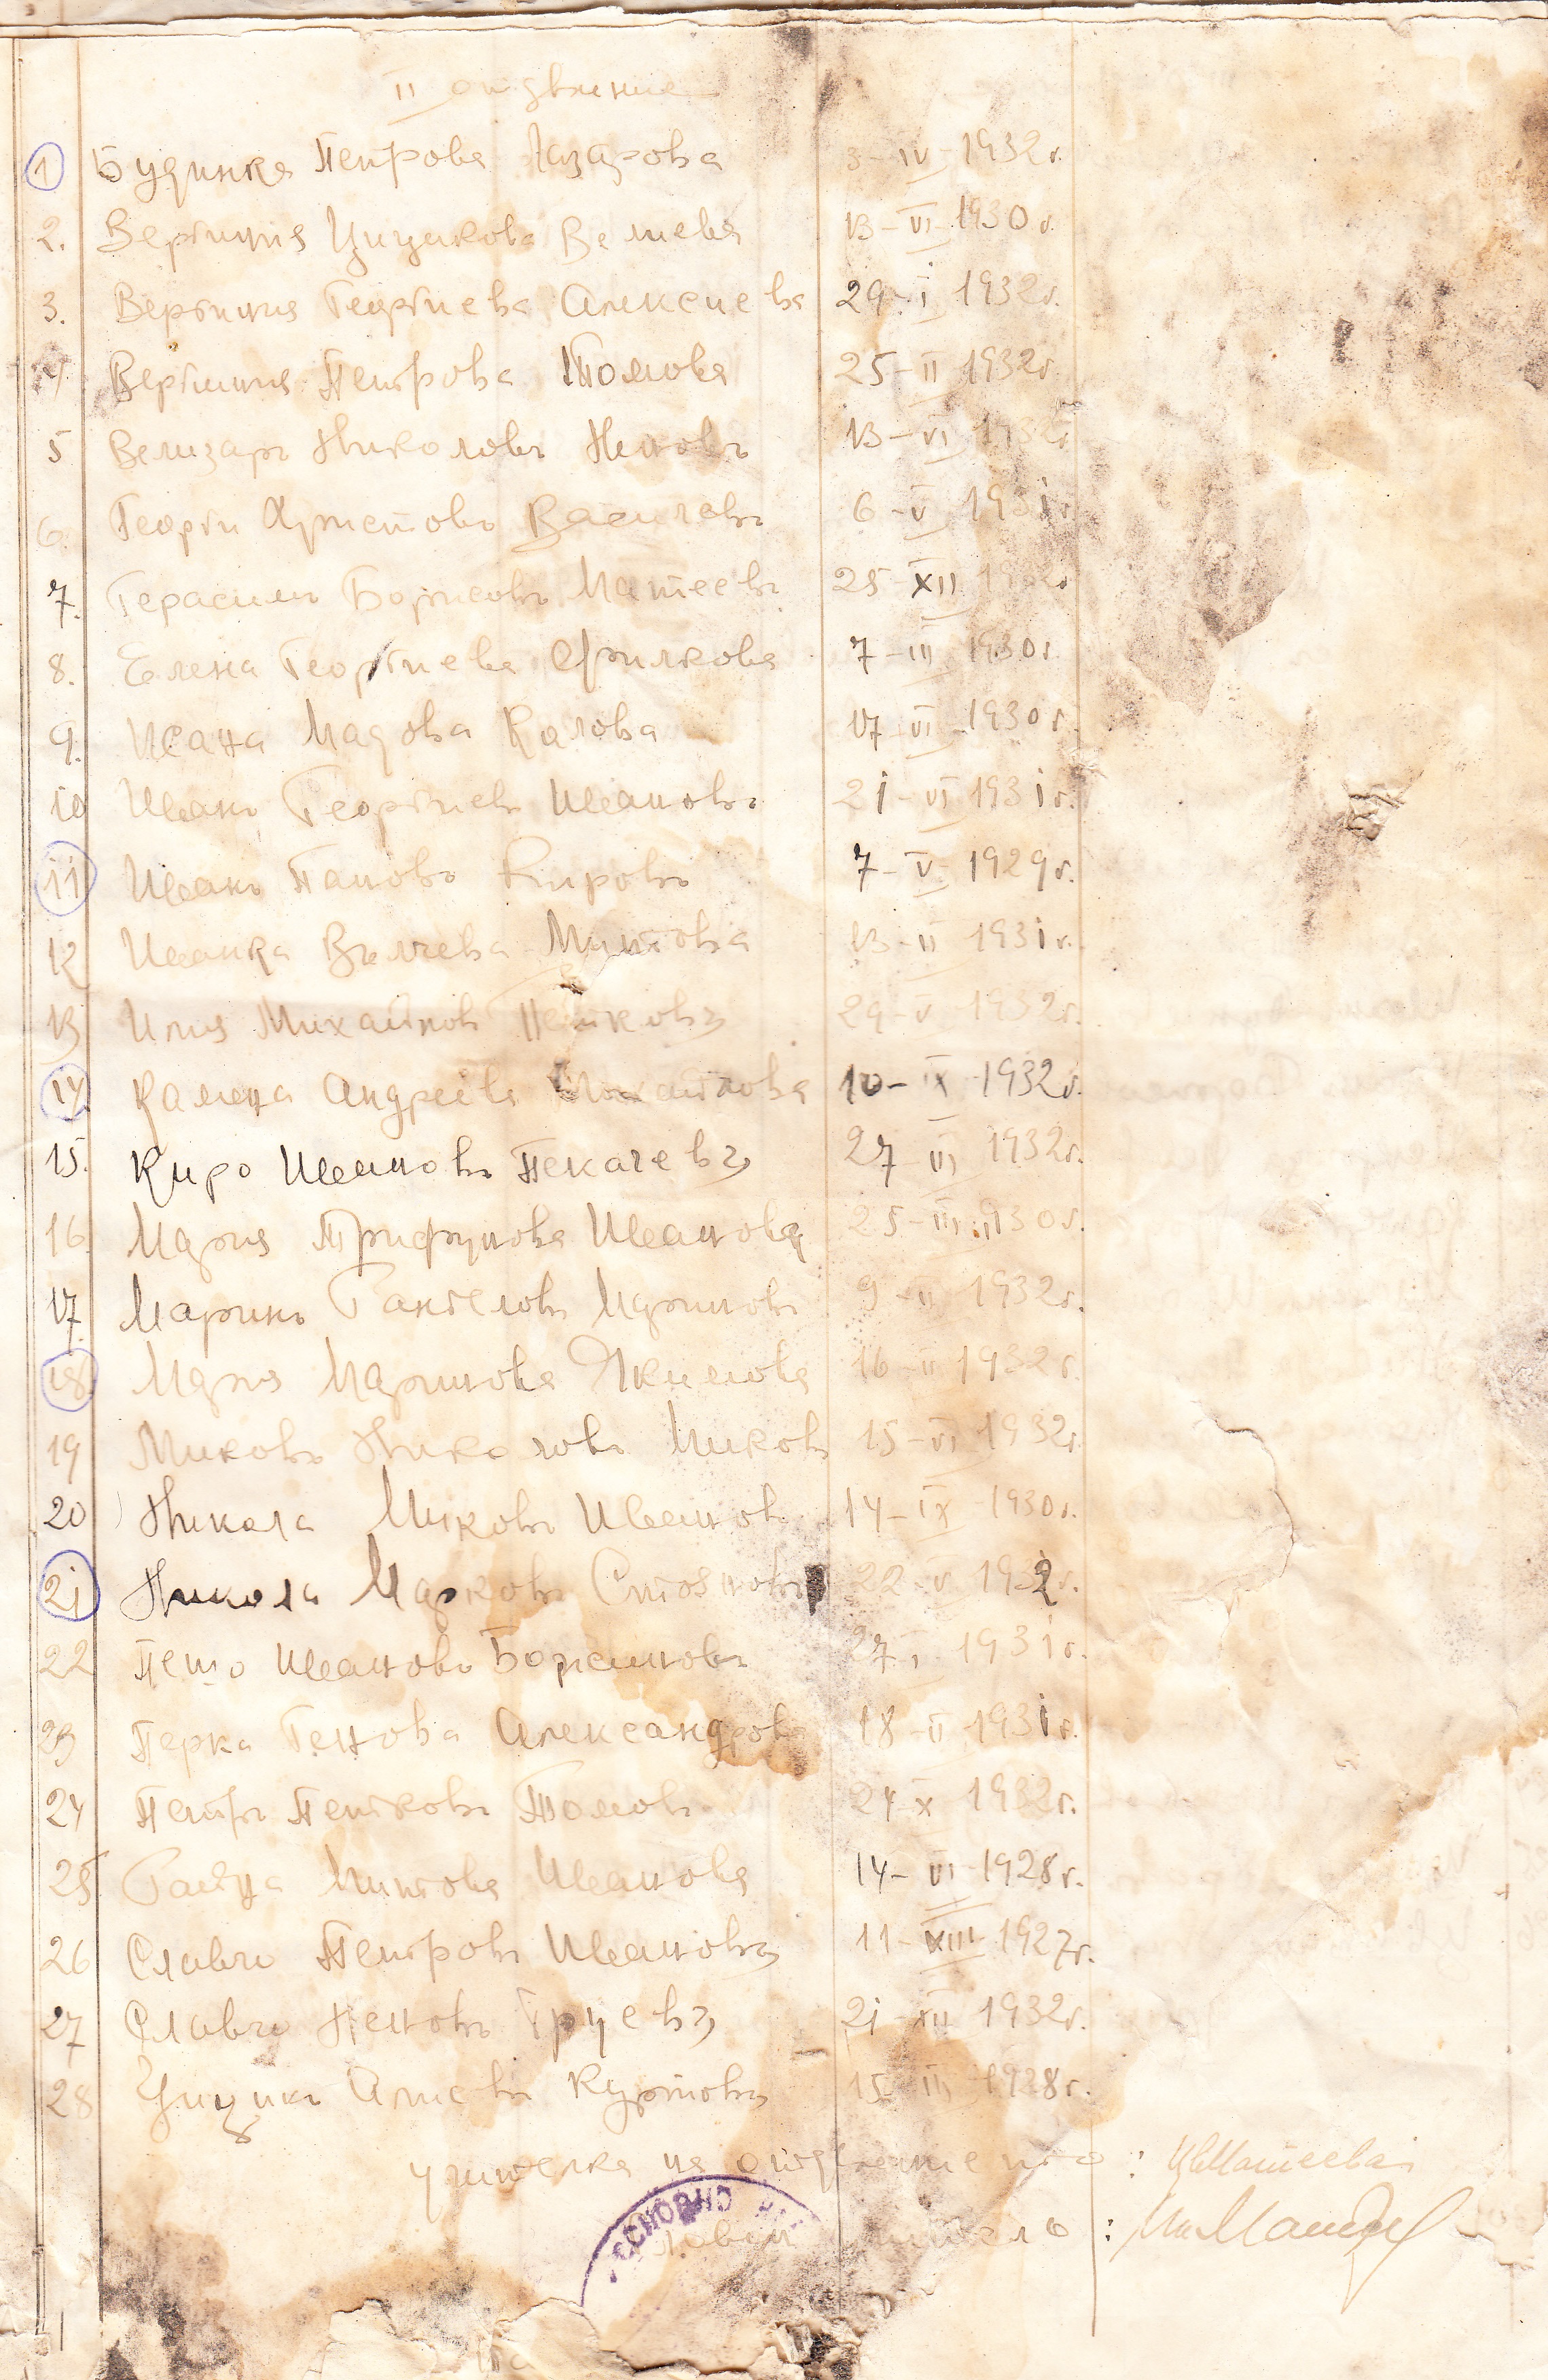 II отдѣление
1 Будинка Петрова Лазарова 3-IV-1932г.
2. Вергиния Цицикова Велшева 13-VI-1930г.
3. Вергиния Георгиева Алексиева 29-I 1932г.
4 Вергиния Петрова Томова 25-II 1932г.
5 Велизаръ Николовъ Неновъ 13-VI 1932г
6. Георги Христовъ Василевъ 6-V 1931г
7. Герасимъ Борисовъ Матеевъ 25-XII
8. Елена Георгиева 7-III 1930г.
9. Исана Калова 17-VI-1930г.
10 Иванъ Георгиевъ Ивановъ 21-VI 1931г.
11 Иванъ Пановъ Кировъ 7-V-1929г.
12 Иванка Вълчева Митова 13-II 1931г.
13 Илия Михайловъ Петковъ 29-V 1932г.
14 Камена Андреева Михайлова 10-IX-1932г.
15. Киро Ивановъ Пекачевъ 27 VI 1932г.
16. Мария Трифунова Иванова 25-III 1930г.
17. Маринъ Рангеловъ Мариновъ 9-II 1932г.
18. Мария Маринова Якимова 16-II 1932г.
19 Миковъ Николовъ Миковъ 15-VI 1932г.
20 Никола Миковъ Ивановъ 14-IX-1930г.
21 Никола Марковъ Стояновъ 22-V 1932г.
22 Пешо Ивановъ Божиновъ 27-I 1931г.
23 Перка Генова Александрова 18-II 1931г.
24 Петъръ Петковъ Томовъ 24 X 1932г.
25 Райна Митова Иванова 14-VI-1928г.
26 Славчо Петровъ Ивановъ 11-XIII-1927г.
27 Славчо Неновъ Груевъ 21-XII 1932г.
28 Алиевъ Куртовъ 15-III-1928г.
учителка на отдѣлението: ЦвМатеева
ОСНОВНО